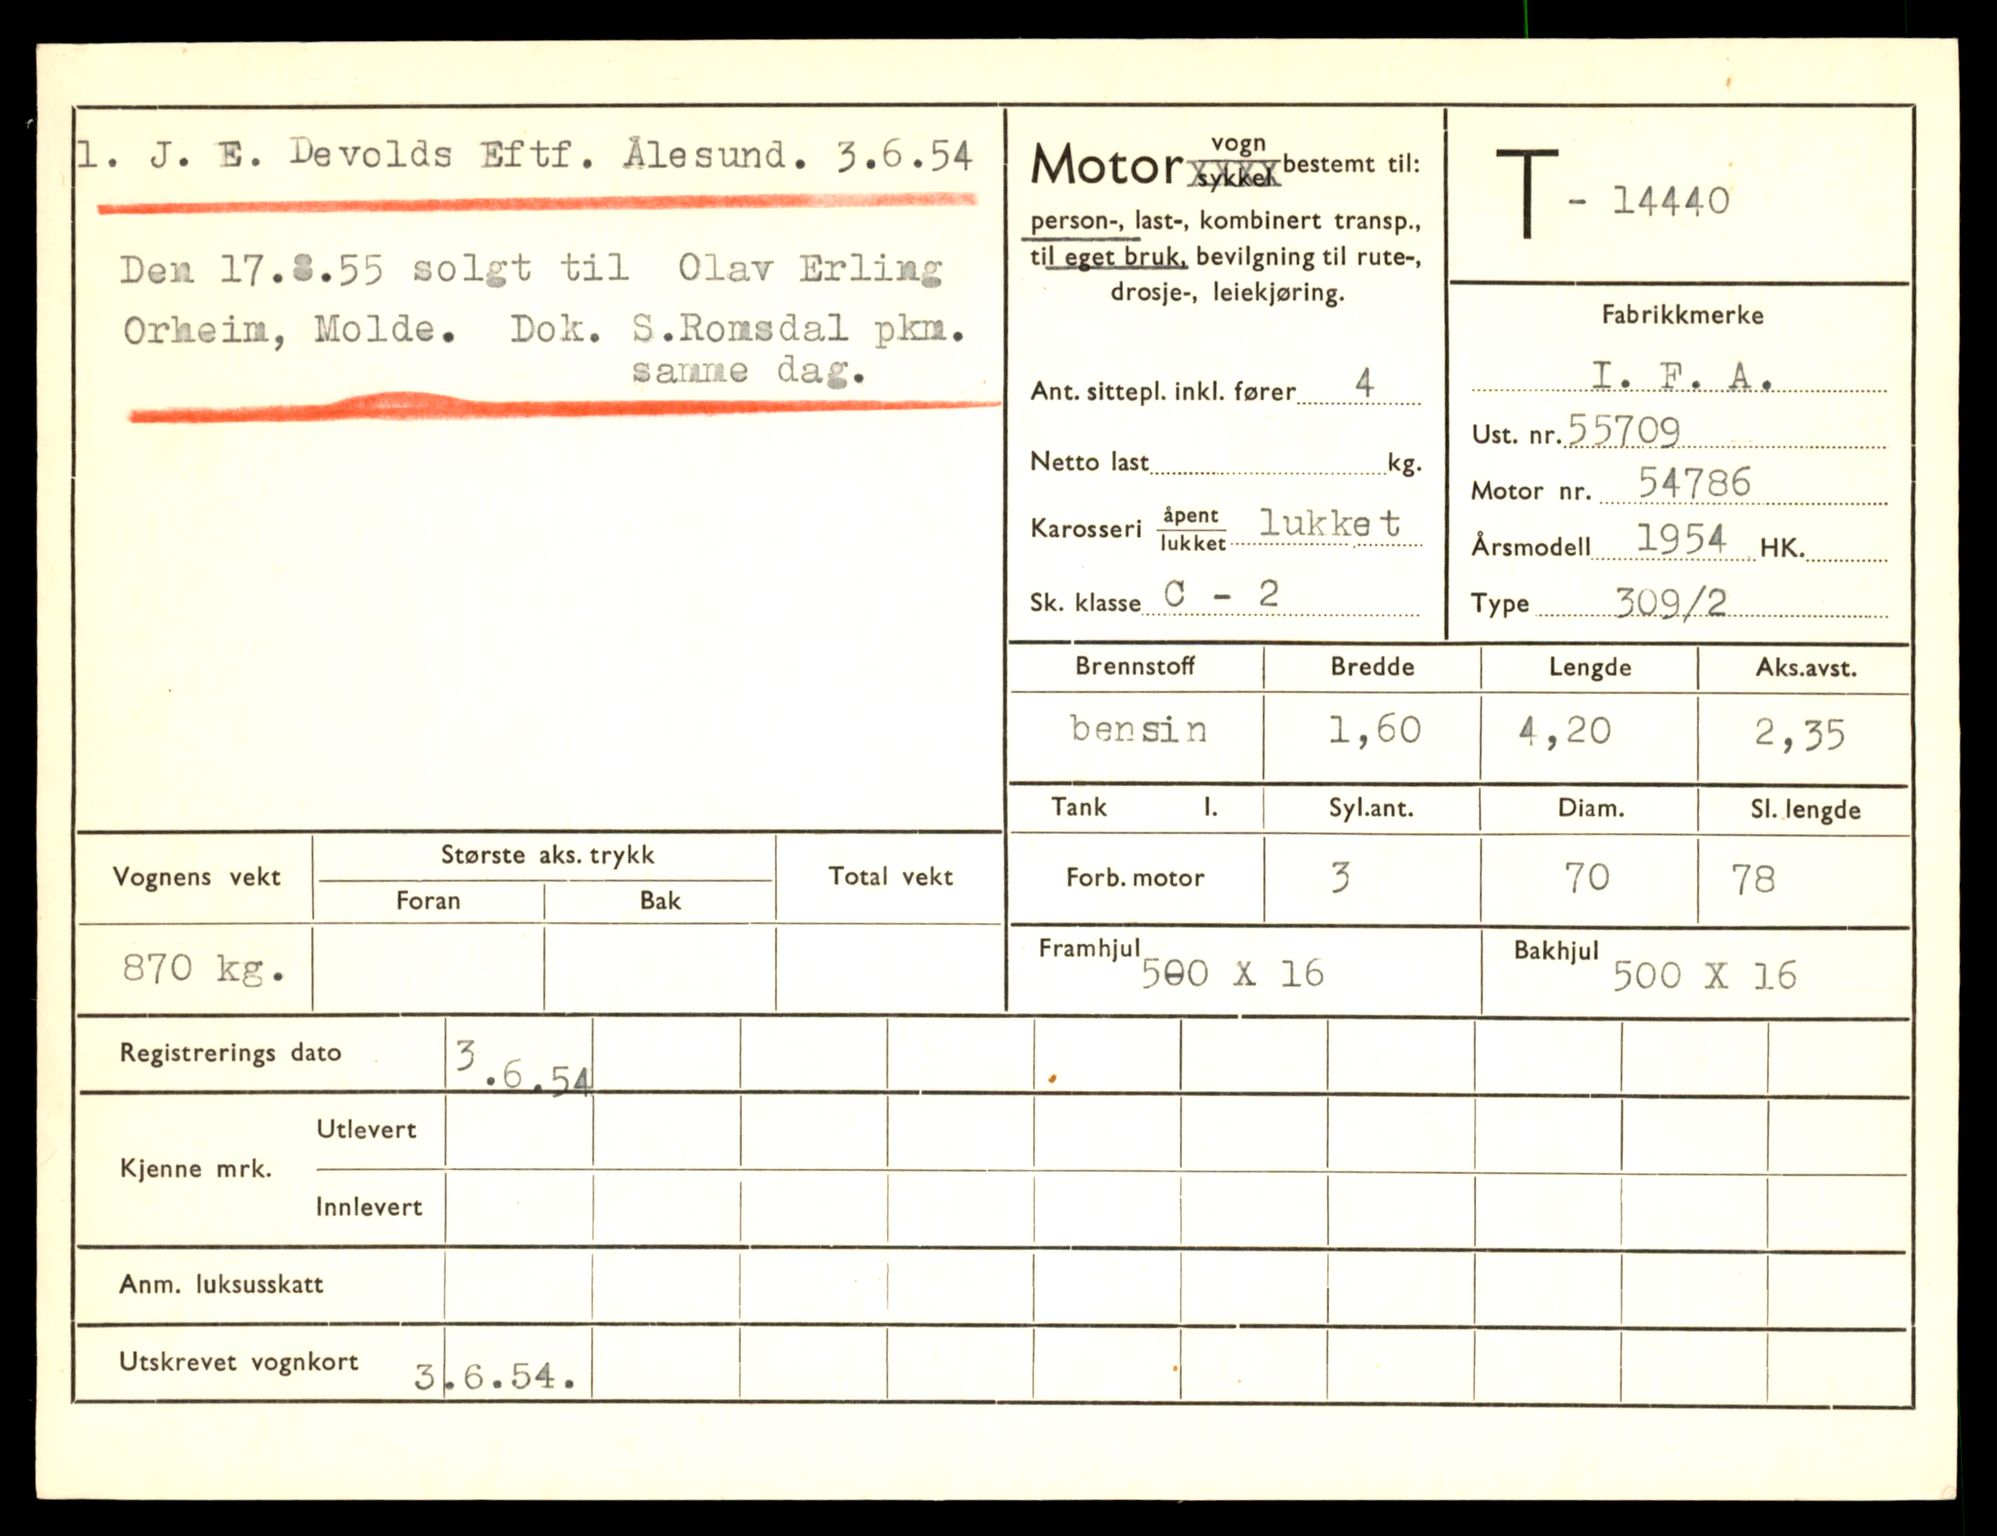 1. J. E. Devolds Eftf. Ålesund. 3.6.54
Den 17.8.55 solgt til Olav Erling
Orheim, Molde. Dok. S.Romsdal pkm.
samme dag.
Motor vogn
sykkel bestemt til:
person-, last-, kombinert transp.,
til eget bruk, bevilgning til rute-,
drosje-, leiekjøring.
Ant. sittepl. inkl. fører 4
Netto last kg.
Karosseri åpent
lukket lukket
Sk. klasse C - 2
T - 14440
Fabrikkmerke
I. F. A.
Ust. nr. 55709
Motor nr. 54786
Årsmodell 1954 HK.
Type 309/2
Brennstoff Bredde Lengde Aks.avst.
bensin 1,60 4,20 2,35
Tank l. Syl.ant. Diam. Sl. lengde
Forb. motor 3 70 78
Framhjul 500 X 16 Bakhjul 500 X 16
Vognens vekt Største aks. trykk Total vekt
Foran Bak
870 kg.
Registrerings dato 3.6.54
Kjenne mrk. Utlevert
Innlevert
Anm. luksusskatt
Utskrevet vognkort 3.6.54.